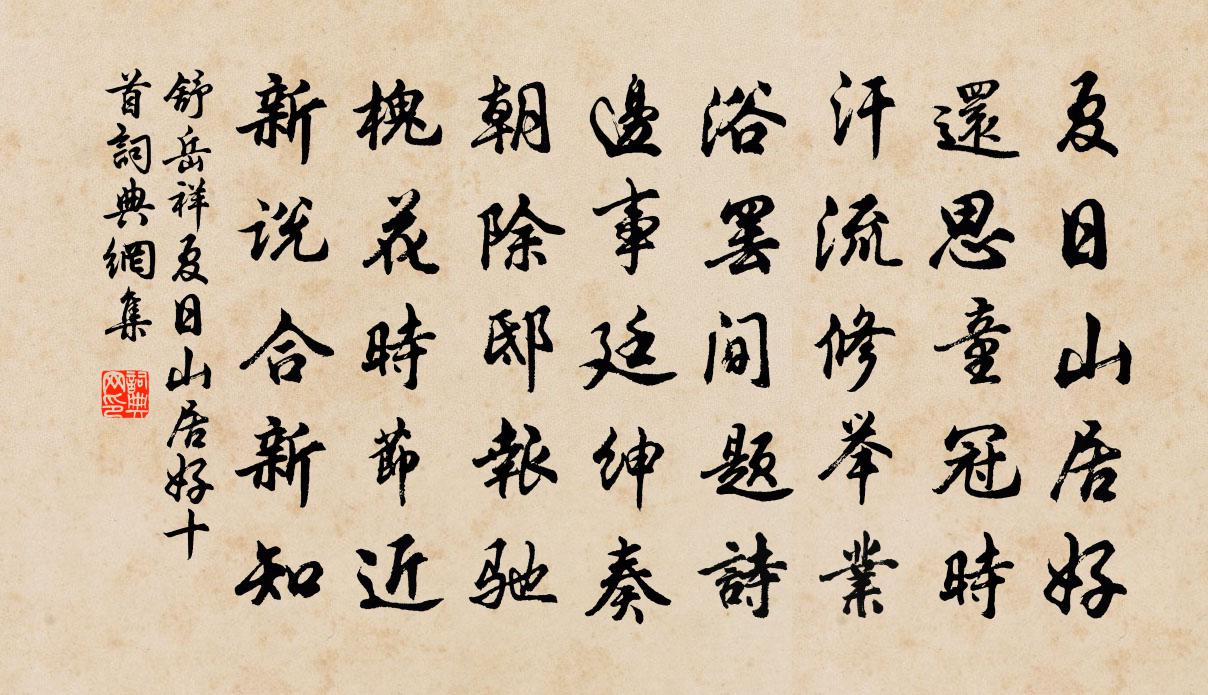 夏日山居好
還思童冠時
汗流修举業
浴罢间題詩
邊事廷绅奏
朝除邸報驰
槐花時節近
新说合新知
舒岳祥夏日山居好十
首詞典網集
詞典
网印